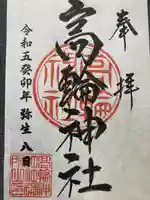 奉拝
高輪神社
令和五癸卯年弥生八日